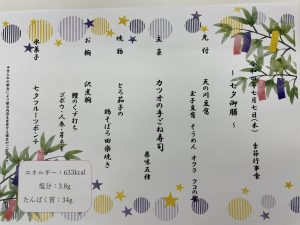 七月七日(木) 季節行事食
〜七夕御膳〜
先付 天の川豆腐
玉子豆腐 そうめん オクラ クコの実
主菜 カツオの手こね寿司
薬味五種
焼物 とろ茄子の
鶏そぼろ田楽焼き
お椀 沢煮椀
鱧のくず打ち
ゴボウ・人参・
水菓子 七夕フルーツポンチ
エネルギー:633kcal
塩分:3.8g
たんぱく質:34g